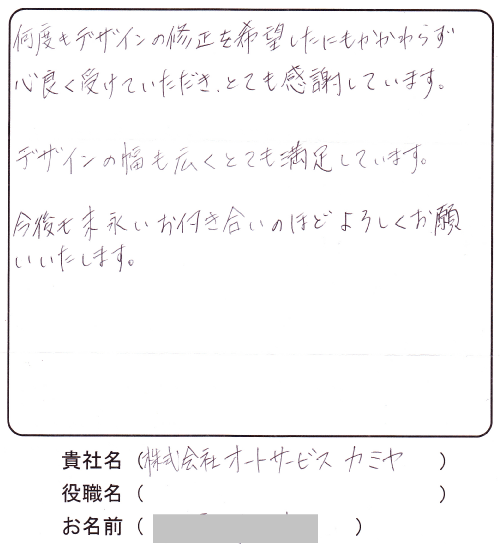 何度もデザインの修正を希望したにもかかわらず
心良く受けていただき、とても感謝しています。
デザインの幅も広くとても満足しています。
今後も末永いお付き合いのほどよろしくお願
いいたします。
貴社名 (株式会社オートサービス カミヤ )
役職名 ( )
お名前 ( )